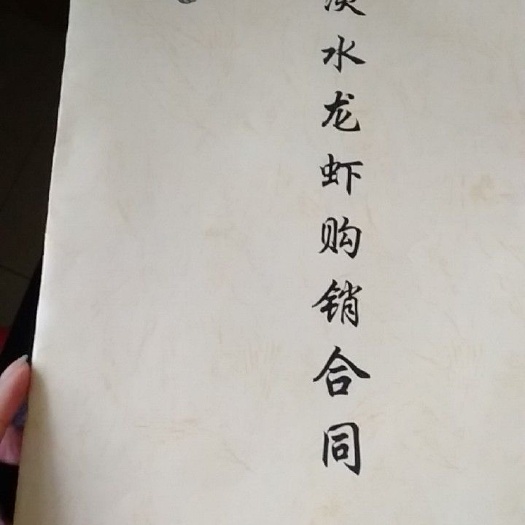 淡水龙虾购销合同